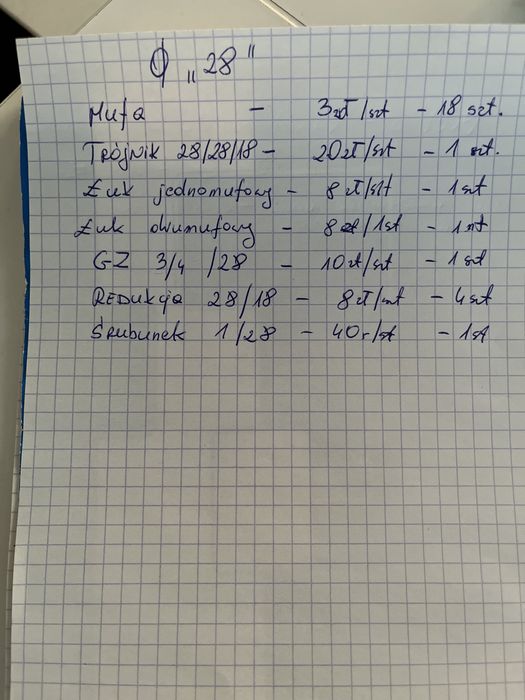 Φ „28"
Mufa - 3zł/szt - 18 szt.
Trójnik 28/28/18 - 20zł/szt - 1 szt.
Łuk jednomufowy - 8 zł/szt - 1szt
Łuk dwumufowy - 8zł/1szt - 1szt
GZ 3/4 /28 - 10zł/szt - 1szt
REDUKCja 28/18 - 8zł/szt - 4szt
Śrubunek 1/28 - 40r/szt - 1szt